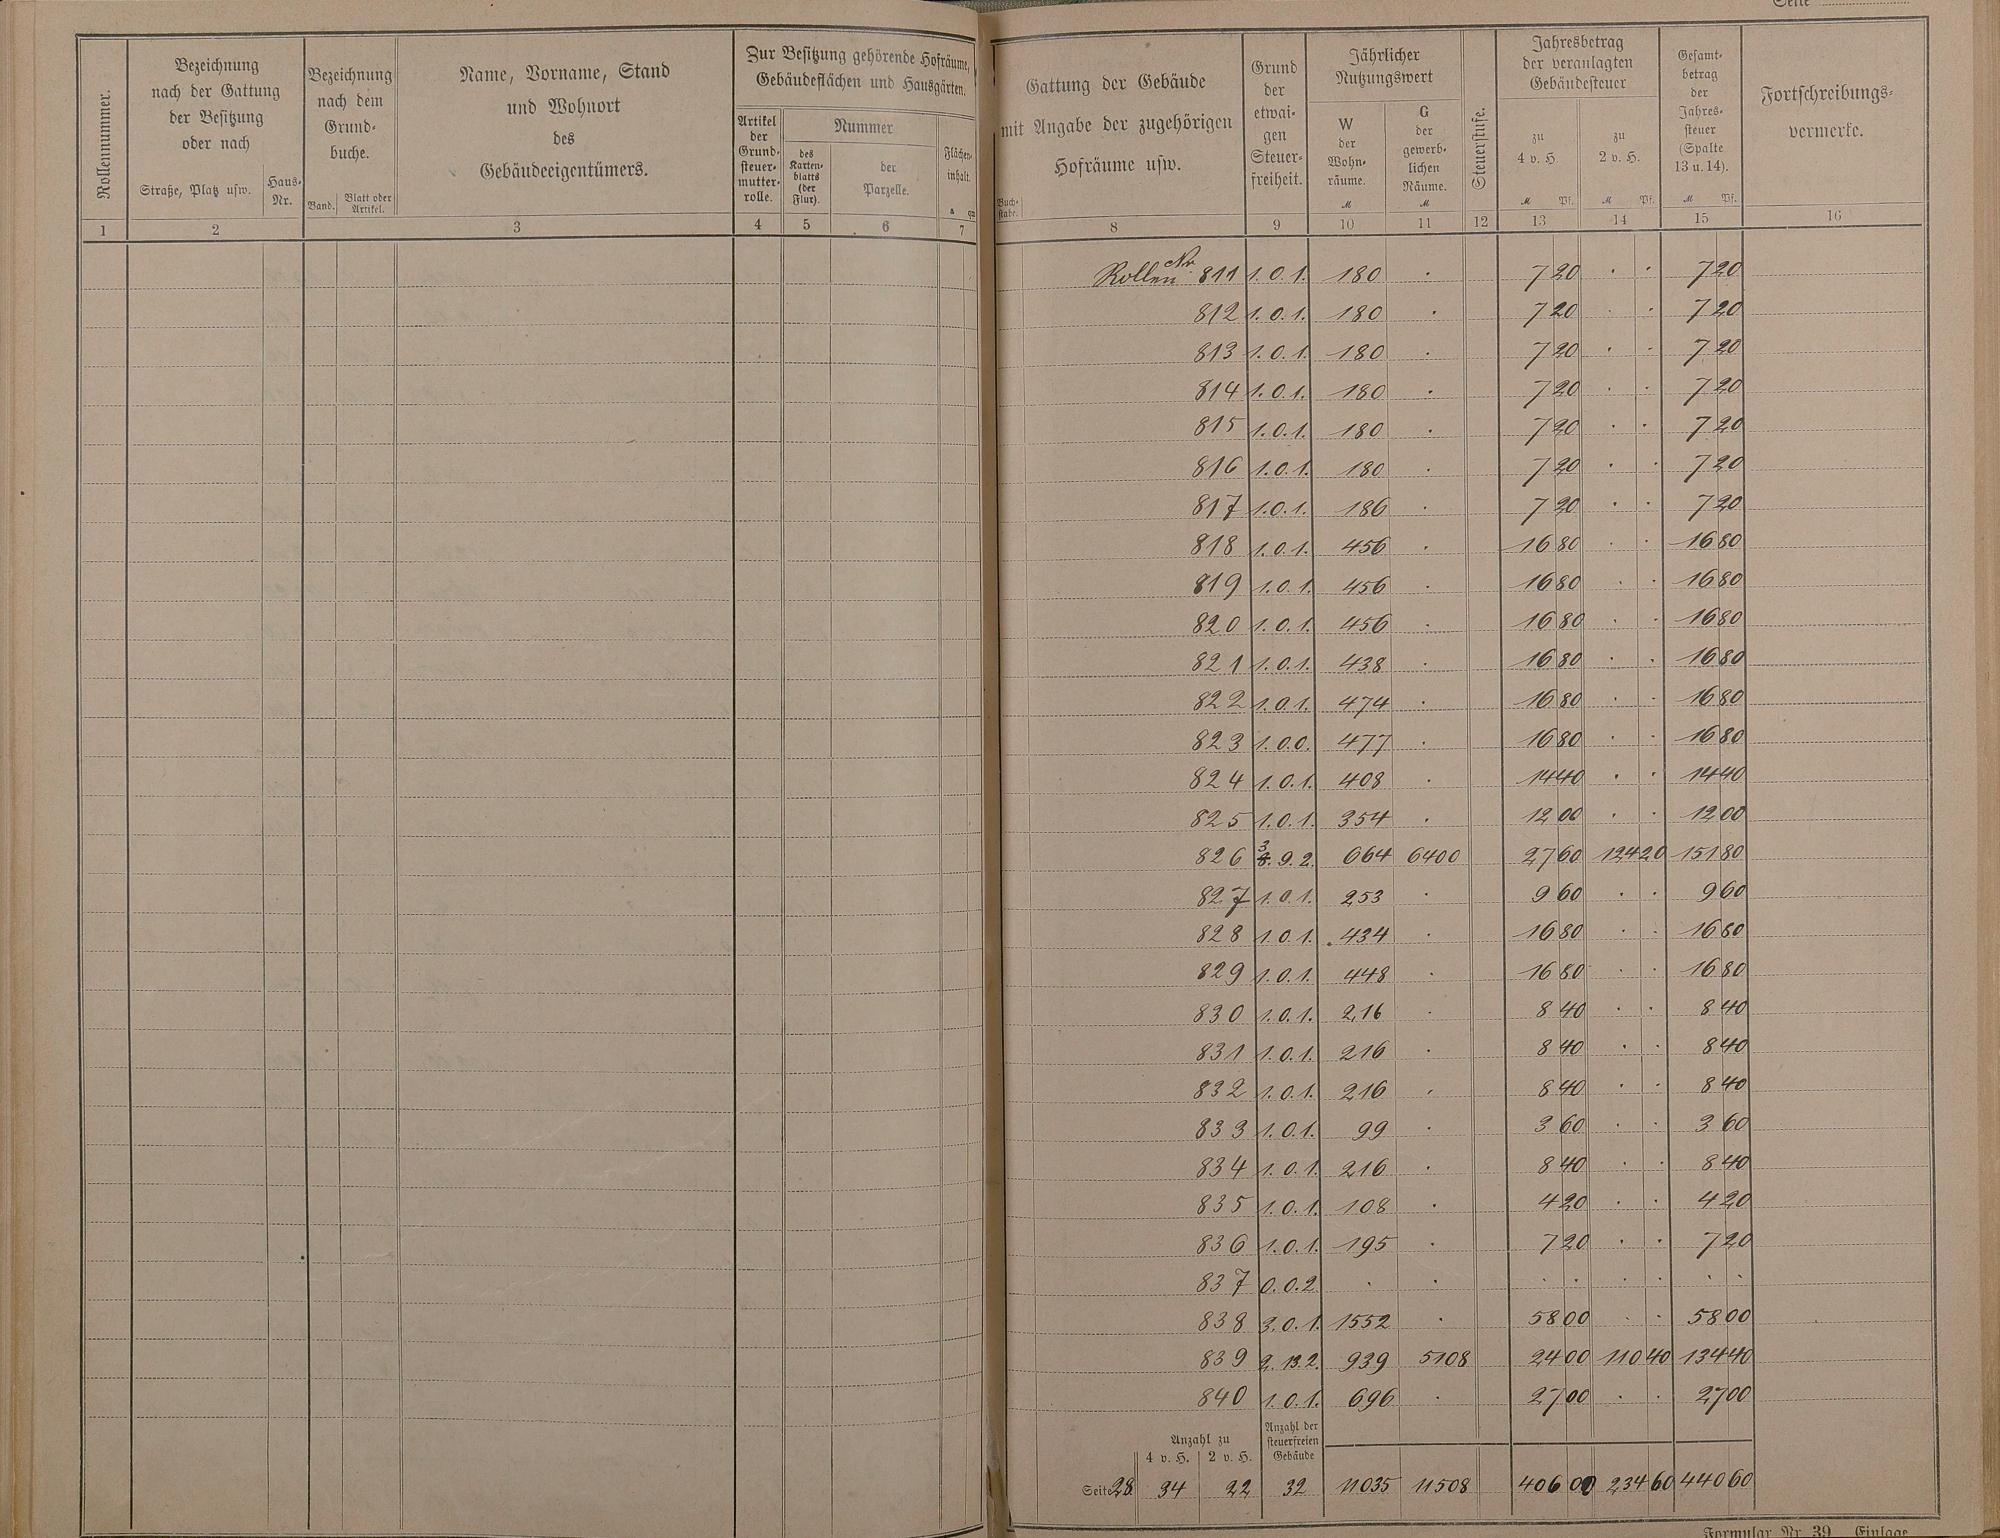 Seite
Rollennummer.
Bezeichnung
nach der Gattung
der Besitzung
oder nach
Straße, Platz usw.
Haus-
Nr.
Bezeichnung
nach dem
Grund-
buche.
Band.
Blatt oder
Artikel.
Name, Vorname, Stand
und Wohnort
des
Gebäudeeigentümers.
Zur Besitzung gehörende Hofräume,
Gebäudeflächen und Hausgärten.
Artikel
der
Grund-
steuer-
mutter-
rolle.
Nummer
des
Karten-
blatts
(der
Flur).
der
Parzelle.
Flächen-
inhalt.
a qm
1 2 3 4 5 6 7
Gattung der Gebäude
mit Angabe der zugehörigen
Hofräume usw.
Buch-
stabe.
Grund
der
etwai-
gen
Steuer-
freiheit.
Jährlicher
Nutzungswert
W
der
Wohn-
räume.
M
G
der
gewerb-
lichen
Räume.
M
Steuerstufe.
Jahresbetrag
der veranlagten
Gebäudesteuer
zu
4 v. H.
M Pf.
zu
2 v. H.
M Pf.
Gesamt-
betrag
der
Jahres-
steuer
(Spalte
13 u. 14).
M Pf.
Fortschreibungs-
vermerke.
8 9 10 11 12 13 14 15 16
Rollen Nr. 811 1.0.1. 180 . 7 20 . . 7 20
812 1.0.1. 180 . 7 20 . . 7 20
813 1.0.1. 180 . 7 20 . . 7 20
814 1.0.1. 180 . 7 20 . . 7 20
815 1.0.1. 180 . 7 20 . . 7 20
816 1.0.1. 180 . 7 20 . . 7 20
817 1.0.1. 186 . 7 20 . . 7 20
818 1.0.1. 456 . 16 80 . . 16 80
819 1.0.1. 456 . 16 80 . . 16 80
820 1.0.1. 456 . 16 80 . . 16 80
821 1.0.1. 438 . 16 80 . . 16 80
822 1.0.1. 474 . 16 80 . . 16 80
823 1.0.0. 477 . 16 80 . . 16 80
824 1.0.1. 408 . 14 40 . . 14 40
825 1.0.1. 354 . 12 00 . . 12 00
826 3.9.2. 664 6400 27 60 124 20 151 80
827 1.0.1. 253 . 9 60 . . 9 60
828 1.0.1. 434 . 16 80 . . 16 80
829 1.0.1. 448 . 16 80 . . 16 80
830 1.0.1. 216 . 8 40 . . 8 40
831 1.0.1. 216 . 8 40 . . 8 40
832 1.0.1. 216 . 8 40 . . 8 40
833 1.0.1. 99 . 3 60 . . 3 60
834 1.0.1. 216 . 8 40 . . 8 40
835 1.0.1. 108 . 4 20 . . 4 20
836 1.0.1. 195 . 7 20 . . 7 20
837 0.0.2. . . . . . . . .
838 3.0.1. 1552 . 58 00 . . 58 00
839 2.13.2. 939 5108 24 00 110 40 134 40
840 1.0.1. 696 . 27 00 . . 27 00
Anzahl zu
4 v. H. 2 v. H.
Anzahl der
steuerfreien
Gebäude
Seite 28. 34 22 32 11035 11508 406 00 234 60 440 60
Formular Nr. 39. Einlage